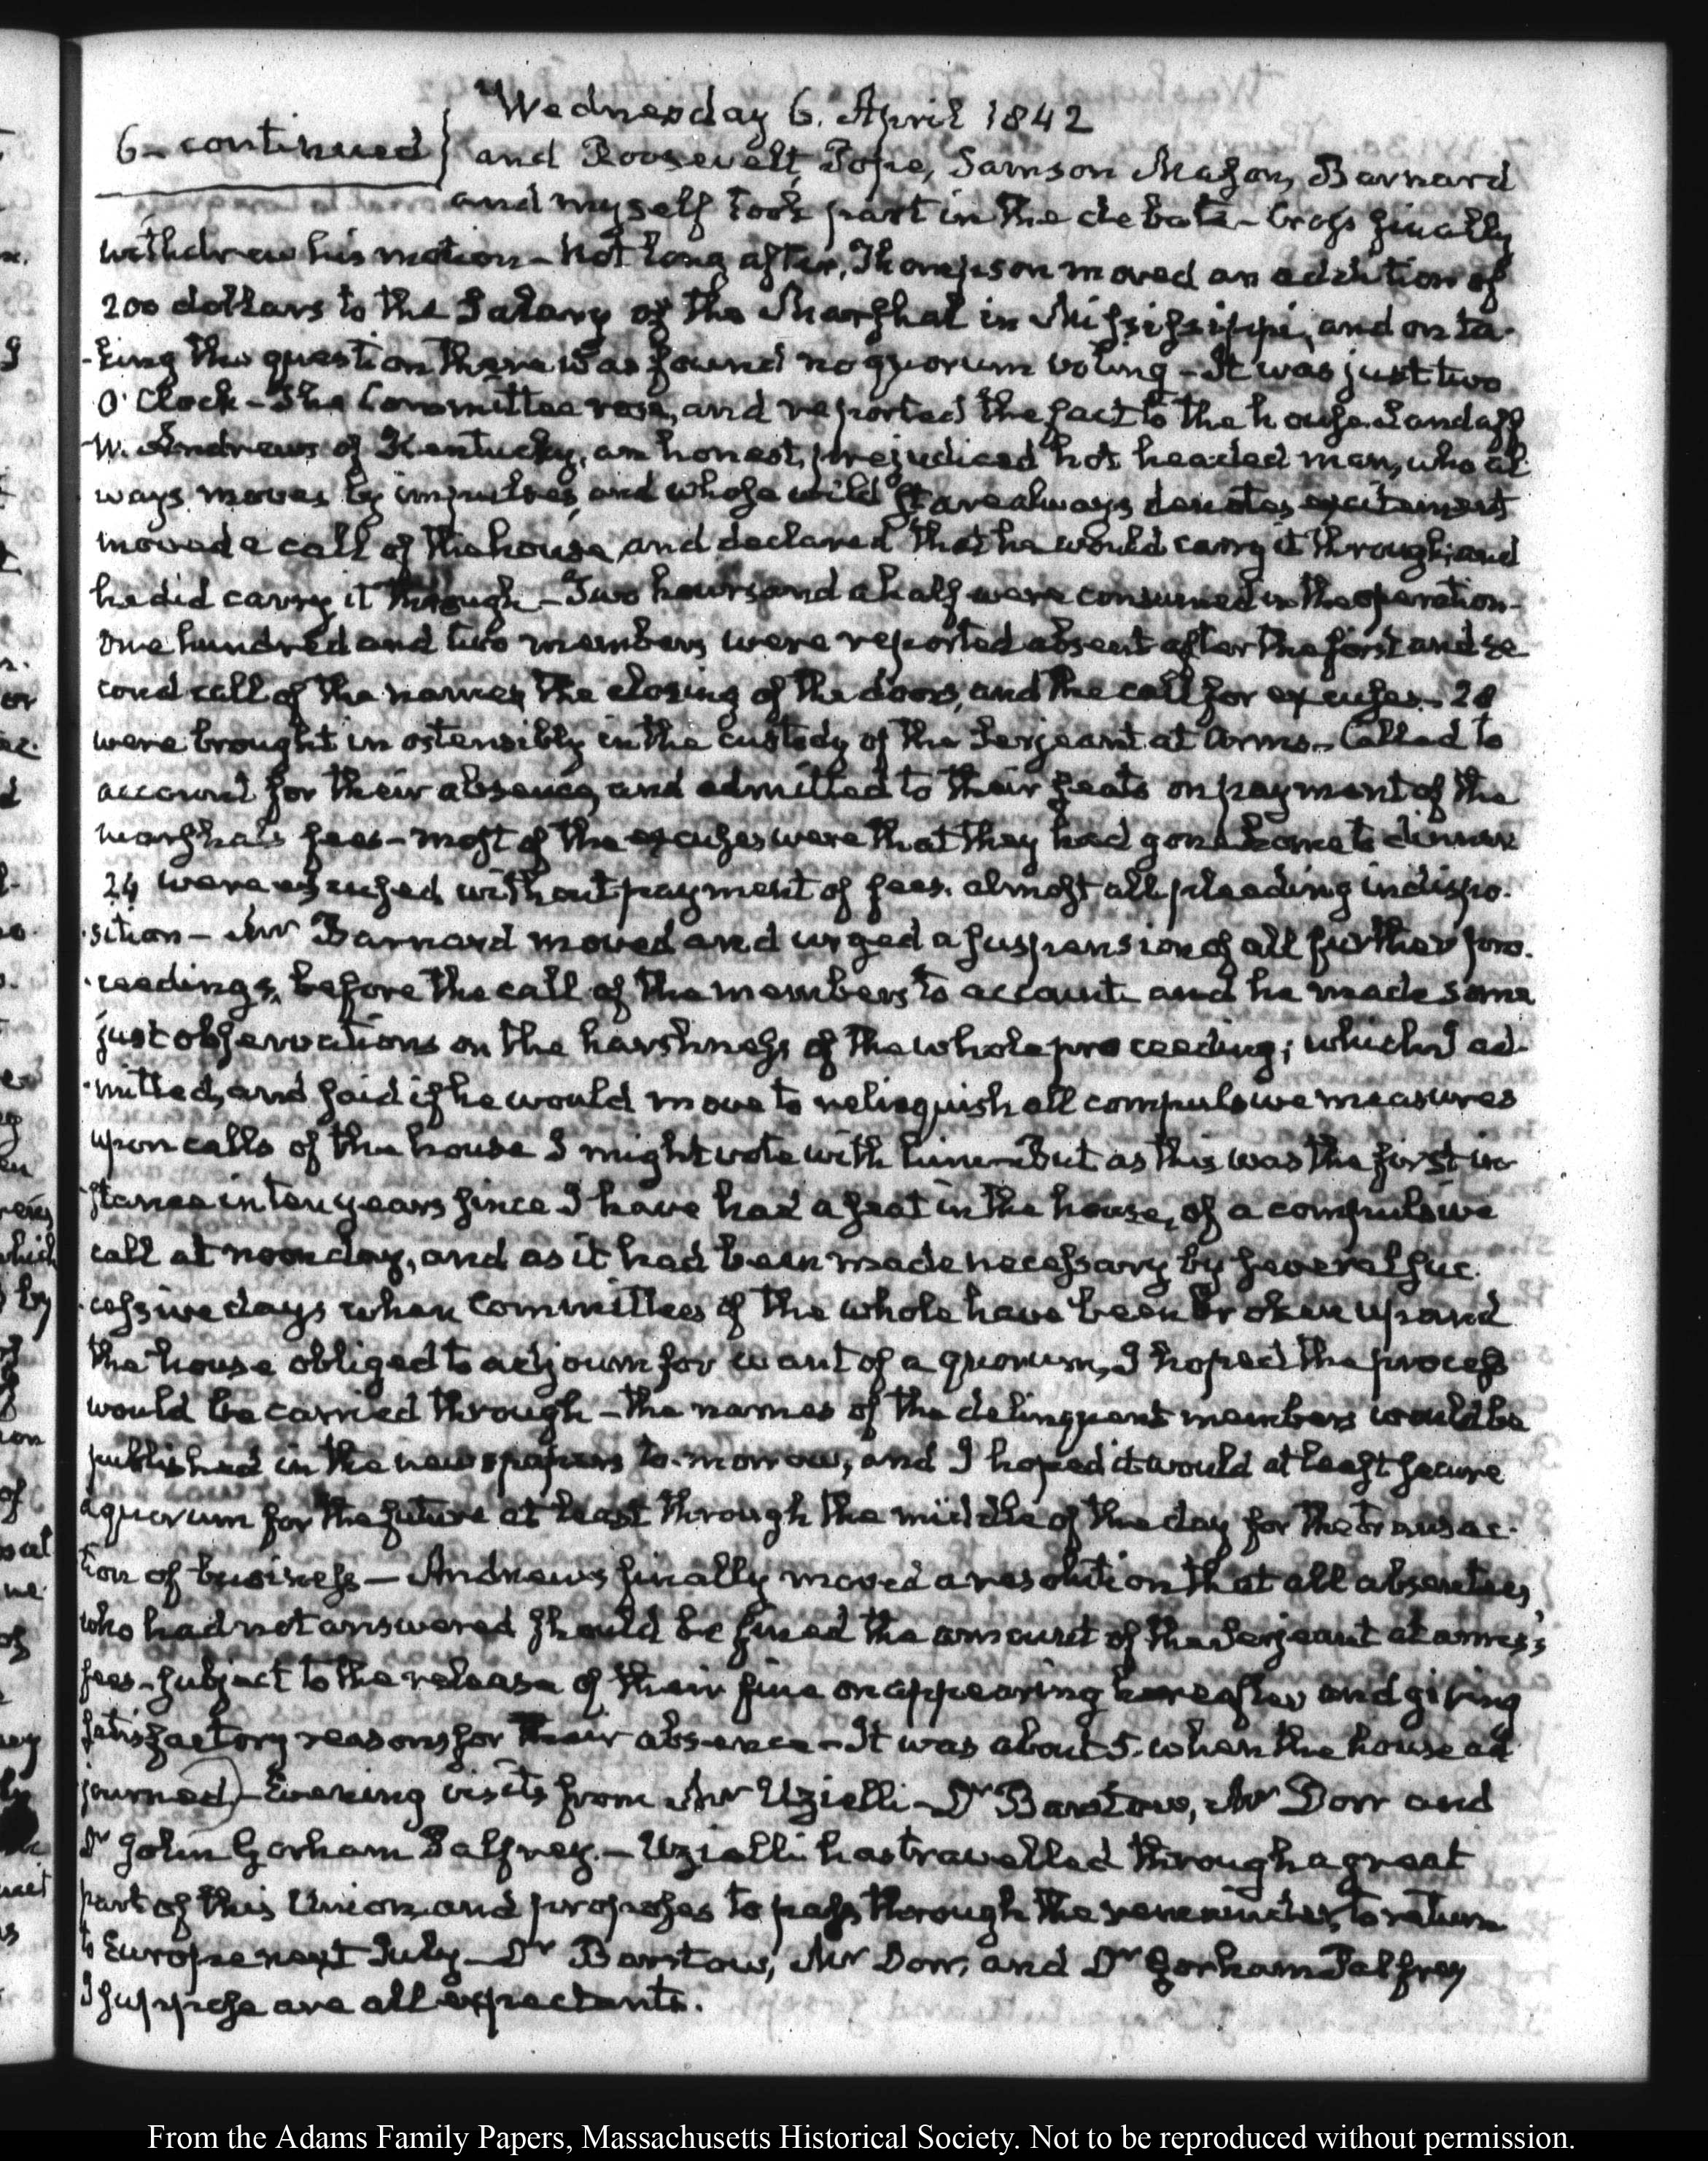 Wednesday 6. April 1842
6 – continued} and Roosevelt, Pope, Samson Mason, Barnard
and myself took part in the debate – Cross finally
withdrew his motion – Not long after, Thompson moved an addition of
200 dollars to the Salary of the Marshal in Mississippi, and on ta-
-king the question there was found no quorum voting – It was just two
O'Clock – The Committee rose, and reported the fact to the house. Landaff
W. Andrews of Kentucky, an honest, prejudiced hot headed man, who al-
ways moves by impulses, and whose wild stare always denotes excitement
moved a call of the house, and declared that he would carry it through; and
he did carry it through – Two hours and a half were consumed in the operation –
One hundred and two members were reported absent after the first and se
cond call of the names, the closing of the doors, and the call for excuses. 28
were brought in ostensibly in the custody of the Serjeant at Arms – Called to
account for their absence, and admitted to their seats on payment of the
marshal's fees – most of the excuses were that they had gone home to dinner
24 were excused without payment of fees. almost all pleading indispo-
-sition – Mr Barnard moved and urged a suspension of all further pro-
-ceedings, before the call of the members to account and he made some
just observations on the harshness of the whole proceeding; which I ad-
-mitted, and said if he would move to relinquish all compulsive measures
upon calls of the house I might vote with him – But as this was the first in-
stance in ten years since I have had a seat in the house, of a compulsive
call at noon day, and as it had been made necessary by several suc-
-cessive days when Committees of the whole have been broken up and
the house obliged to adjourn for want of a quorum, I hoped the process
would be carried through – the names of the delinquent members would be
published in the newspapers to-morrow, and I hoped it would at least secure
a quorum for the future at least through the middle of the day for the transac-
tion of business – Andrews finally moved a resolution that all absentees,
who had not answered should be fined the amount of the Serjeant at arms's
fees – subject to the release of their fine on appearing hereafter and giving
satisfactory reasons for their absence – It was about 5. when the house ad
journed) – Evening visits from Mr Uzielli – Dr Barstow, Mr Dorr and
Dr John Gorham Palfrey. – Uzielli has travelled through a great
part of this Union and proposes to pass through the remainder, to return
to Europe next July – Dr Barstow, Mr Dorr, and Dr Gorham Palfrey
I suppose are all expectants.
From the Adams Family Papers, Massachusetts Historical Society. Not to be reproduced without permission.